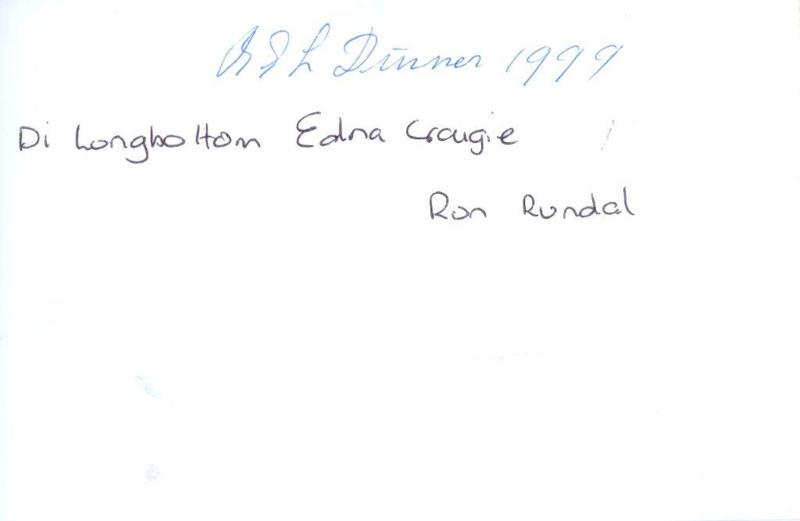 Dinner 1999
Di Longbottom Edna Craugie
Ron Rundal